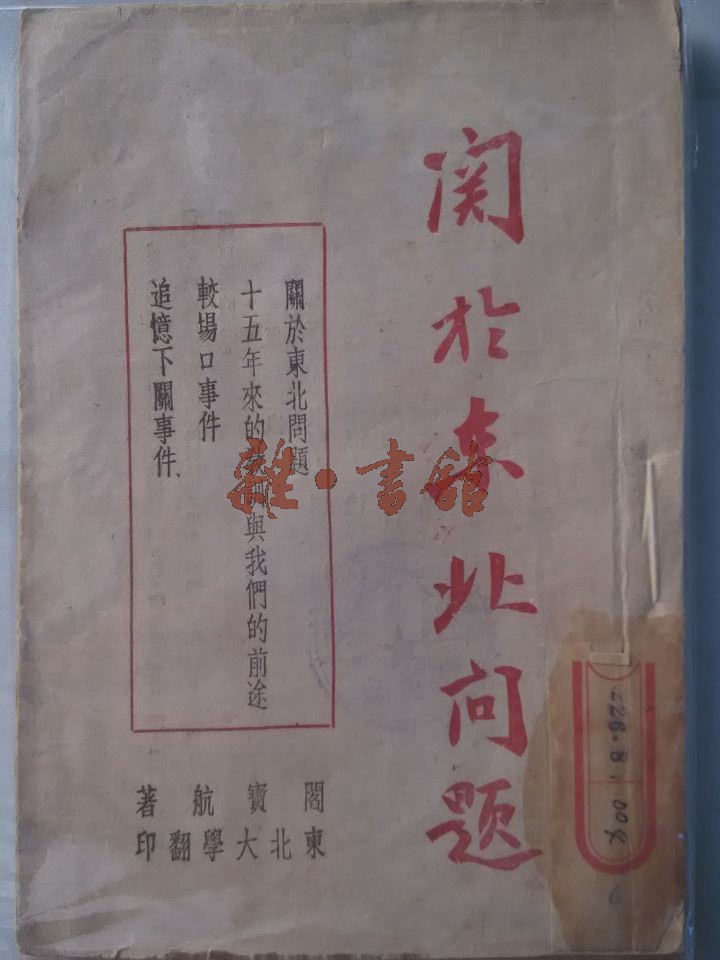 关於東北问题
關於東北問題
十五年來的教訓與我們的前途
較場口事件
追憶下關事件
閻寶航著
東北大學翻印
雜·書館
226.8
004
9